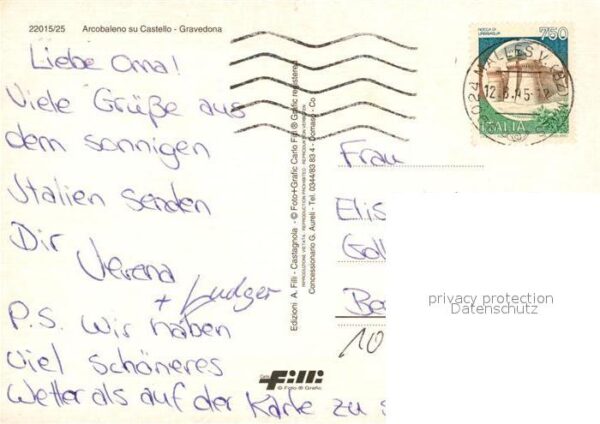 22015/25 Arcobaleno su Castello - Gravedona
Liebe Oma!
Viele Grüße aus
dem sonnigen
Italien senden
Dir
Verena
+ Ludger
P.S. Wir haben
viel schöneres
Wetter als auf der Karte zu s
Edizioni A. Filli - Castagnola - © Foto+Grafic Carlo Filli ® Grafic registered
RIPRODUZIONE VIETATA - REPRODUCTION PROHIBITED - REPRODUKTION VERBOTEN
Concessionario G. Aureli - Tel. 0344/83 83 4 - Domaso - Co
Filli
© Foto ® Grafic
ROCCA DI URBISAGLIA
750
ITALIA
Frau
Elis
Be
10
privacy protection
Datenschutz